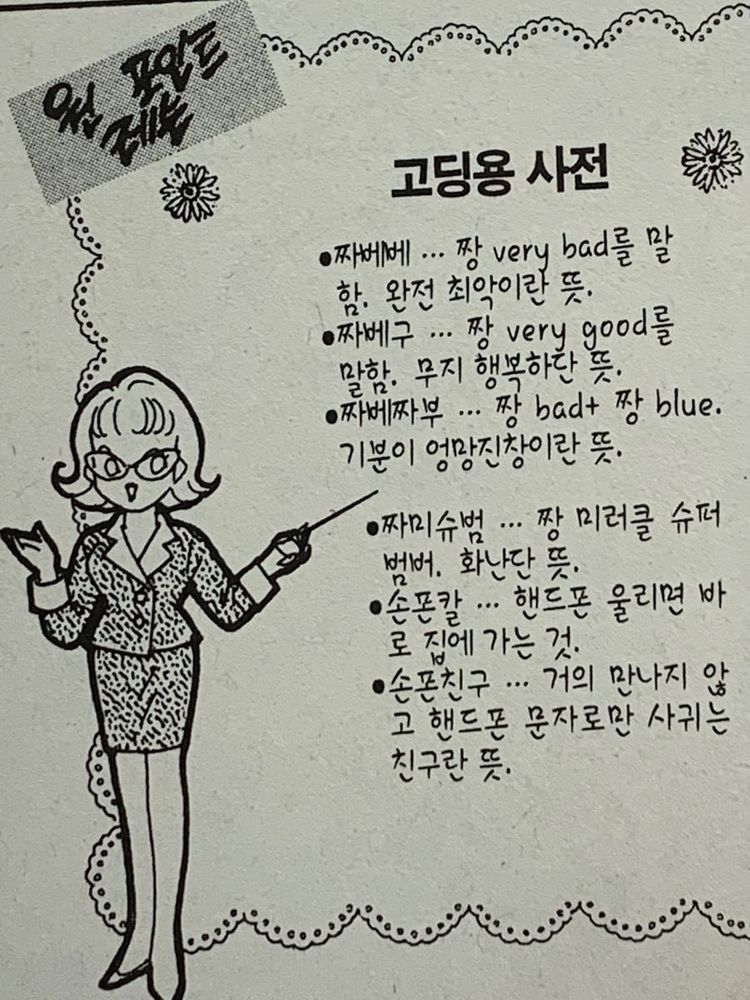 원 포인트
레슨
고딩용 사전
●짜베베 … 짱 very bad를 말
함. 완전 최악이란 뜻.
●짜베구 … 짱 very good를
말함. 무지 행복하단 뜻.
●짜베짜부 … 짱 bad+ 짱 blue.
기분이 엉망진창이란 뜻.
●짜미슈범 … 짱 미러클 슈퍼
범버. 화난단 뜻.
●손폰칼 … 핸드폰 울리면 바
로 집에 가는 것.
●손폰친구 … 거의 만나지 않
고 핸드폰 문자로만 사귀는
친구란 뜻.